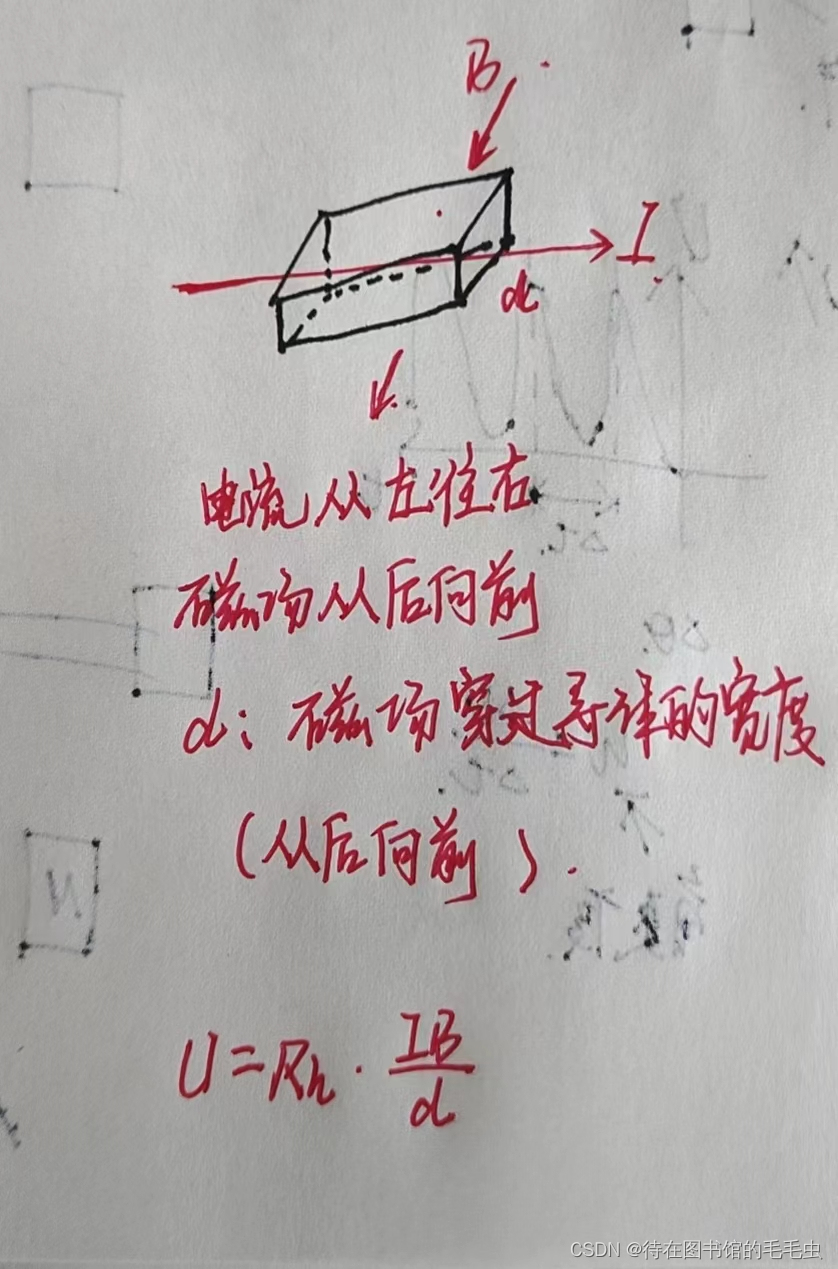 B
I
d
电流从左往右
磁场从后向前
d：磁场穿过导体的宽度
（从后向前）.
U=Rh·IB/d
N
CSDN @待在图书馆的毛毛虫